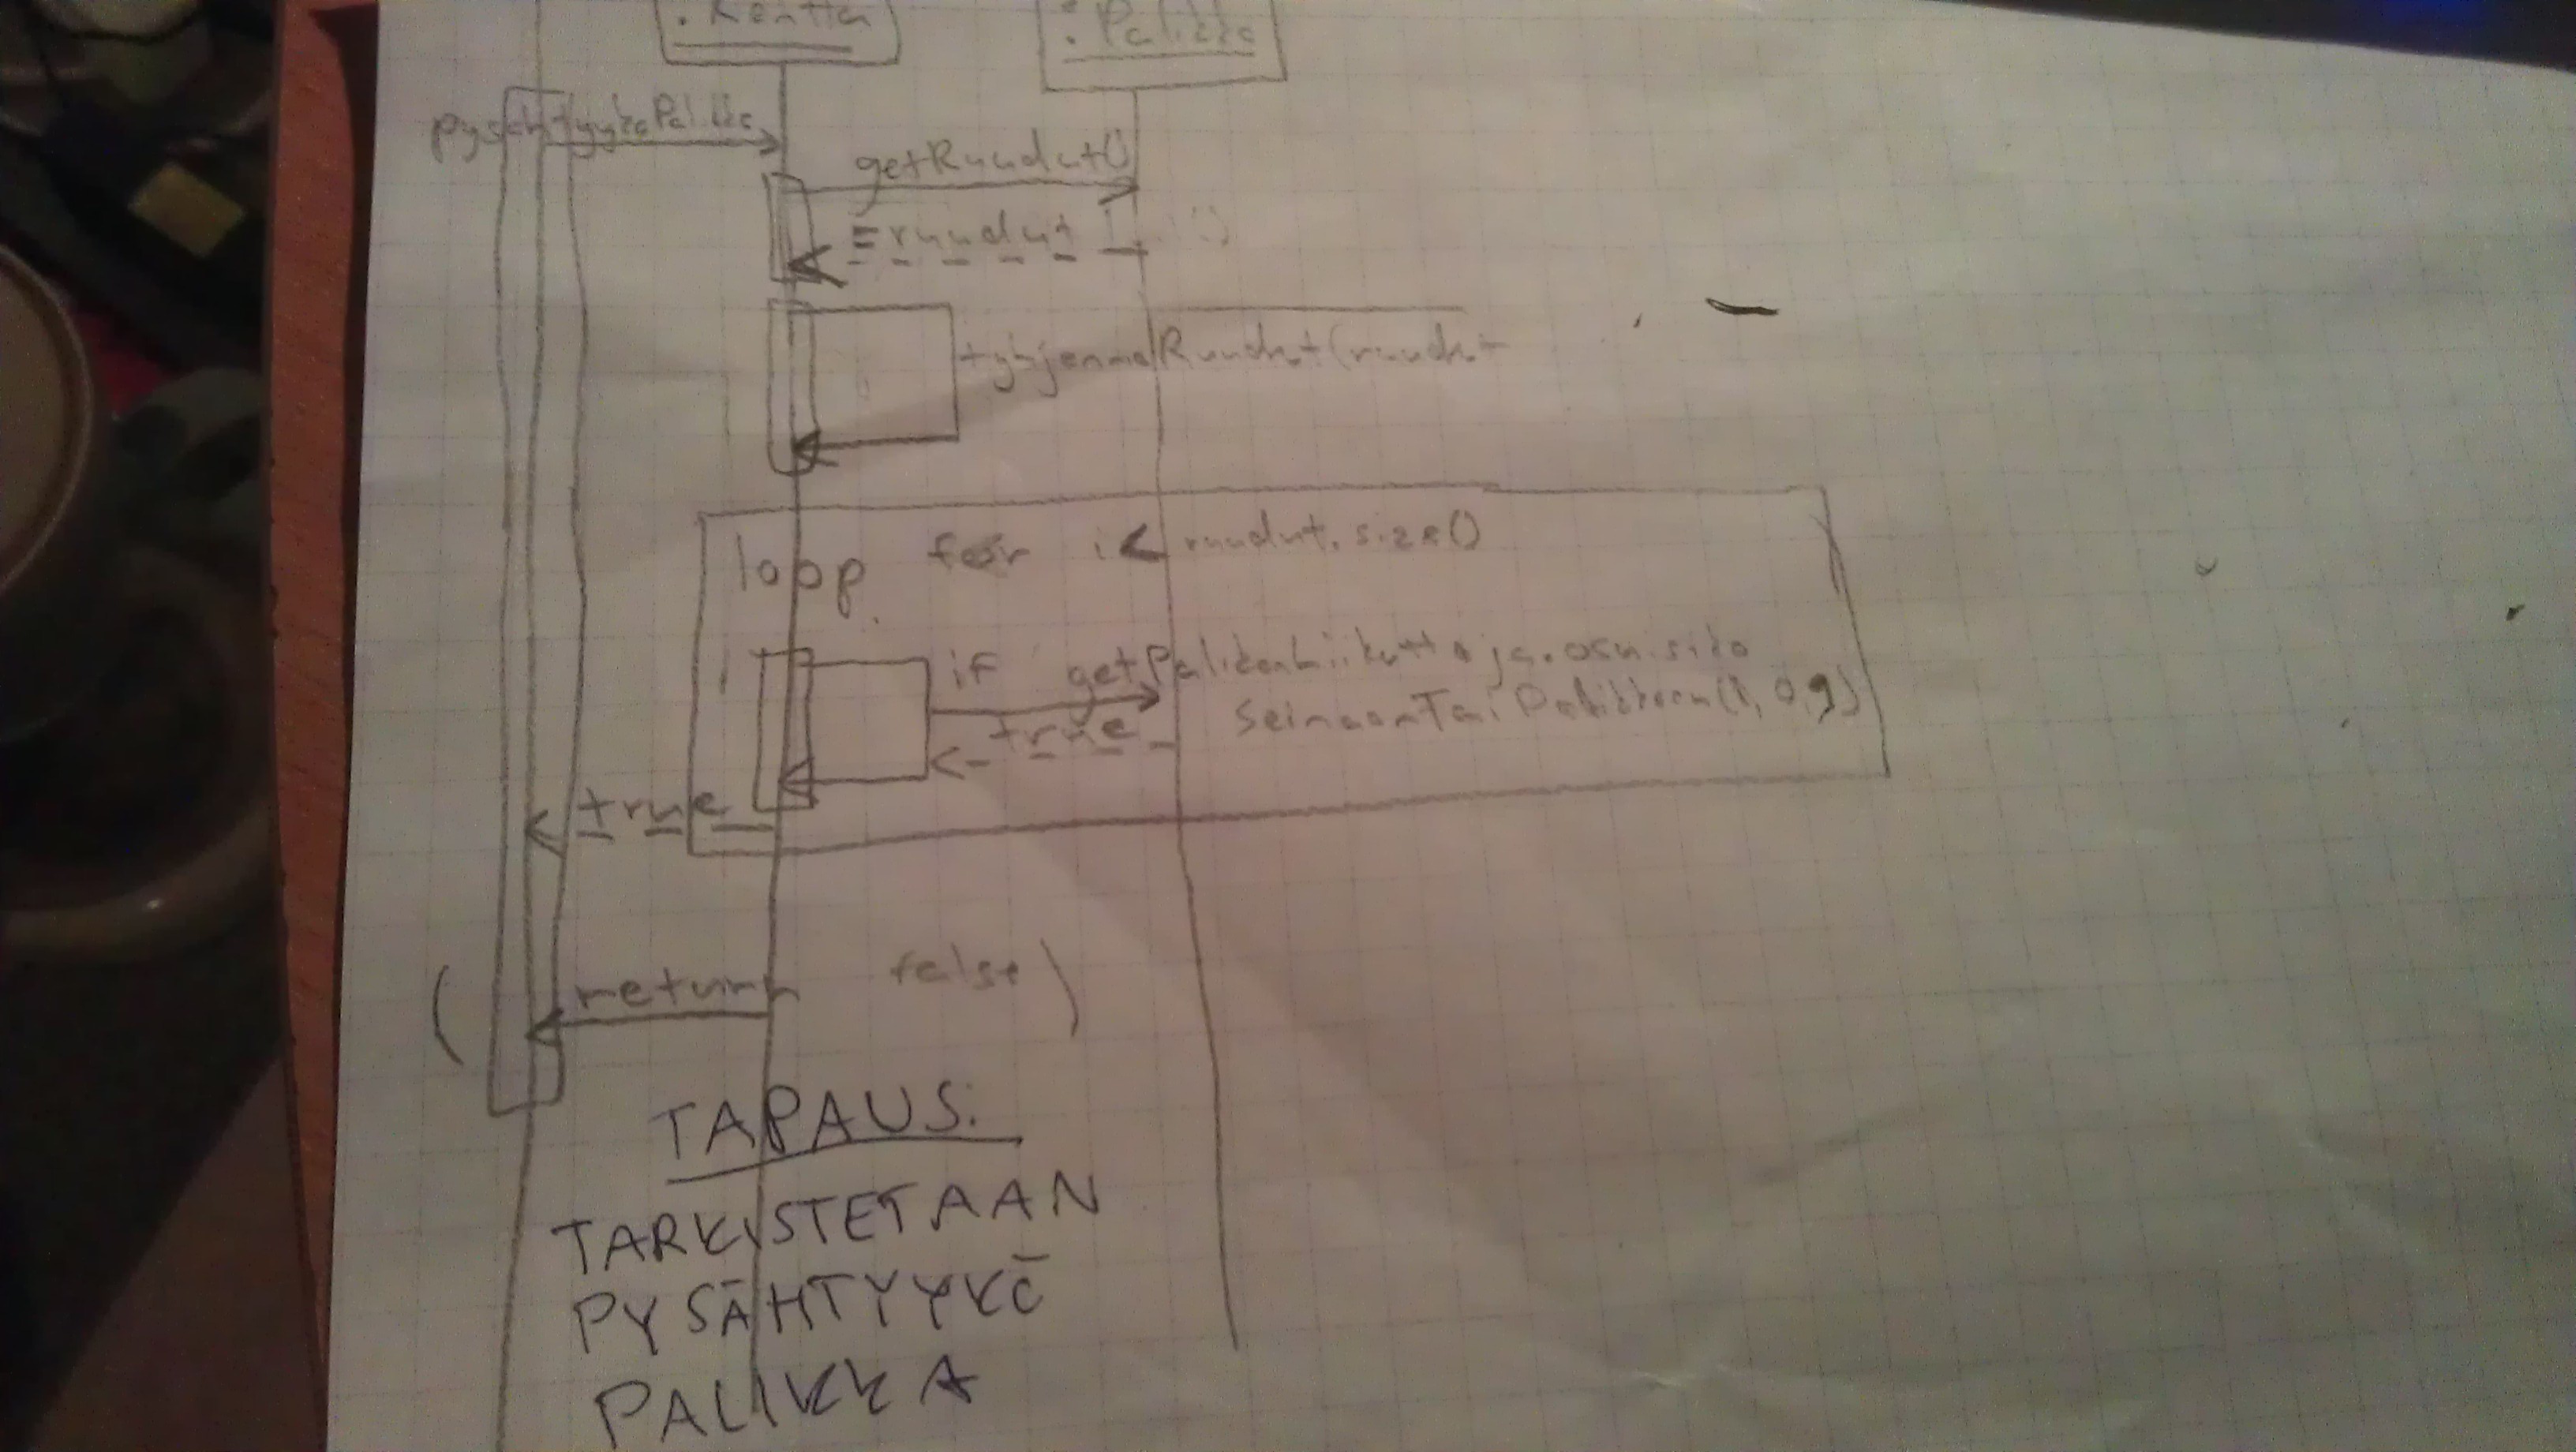 : Kenttä
: Palikka
pysahtyykoPalikka
getRuudut()
= ruudut
tyhjennaRuudut(ruudut
loop for i < ruudut.size()
if getPalikanLiikuttaja.osuisiko
SeinaanTaiPalikkaan(1, 0, 9)
true
true
( return false )
TAPAUS:
TARKISTETAAN
PYSÄHTYYKÖ
PALIKKA